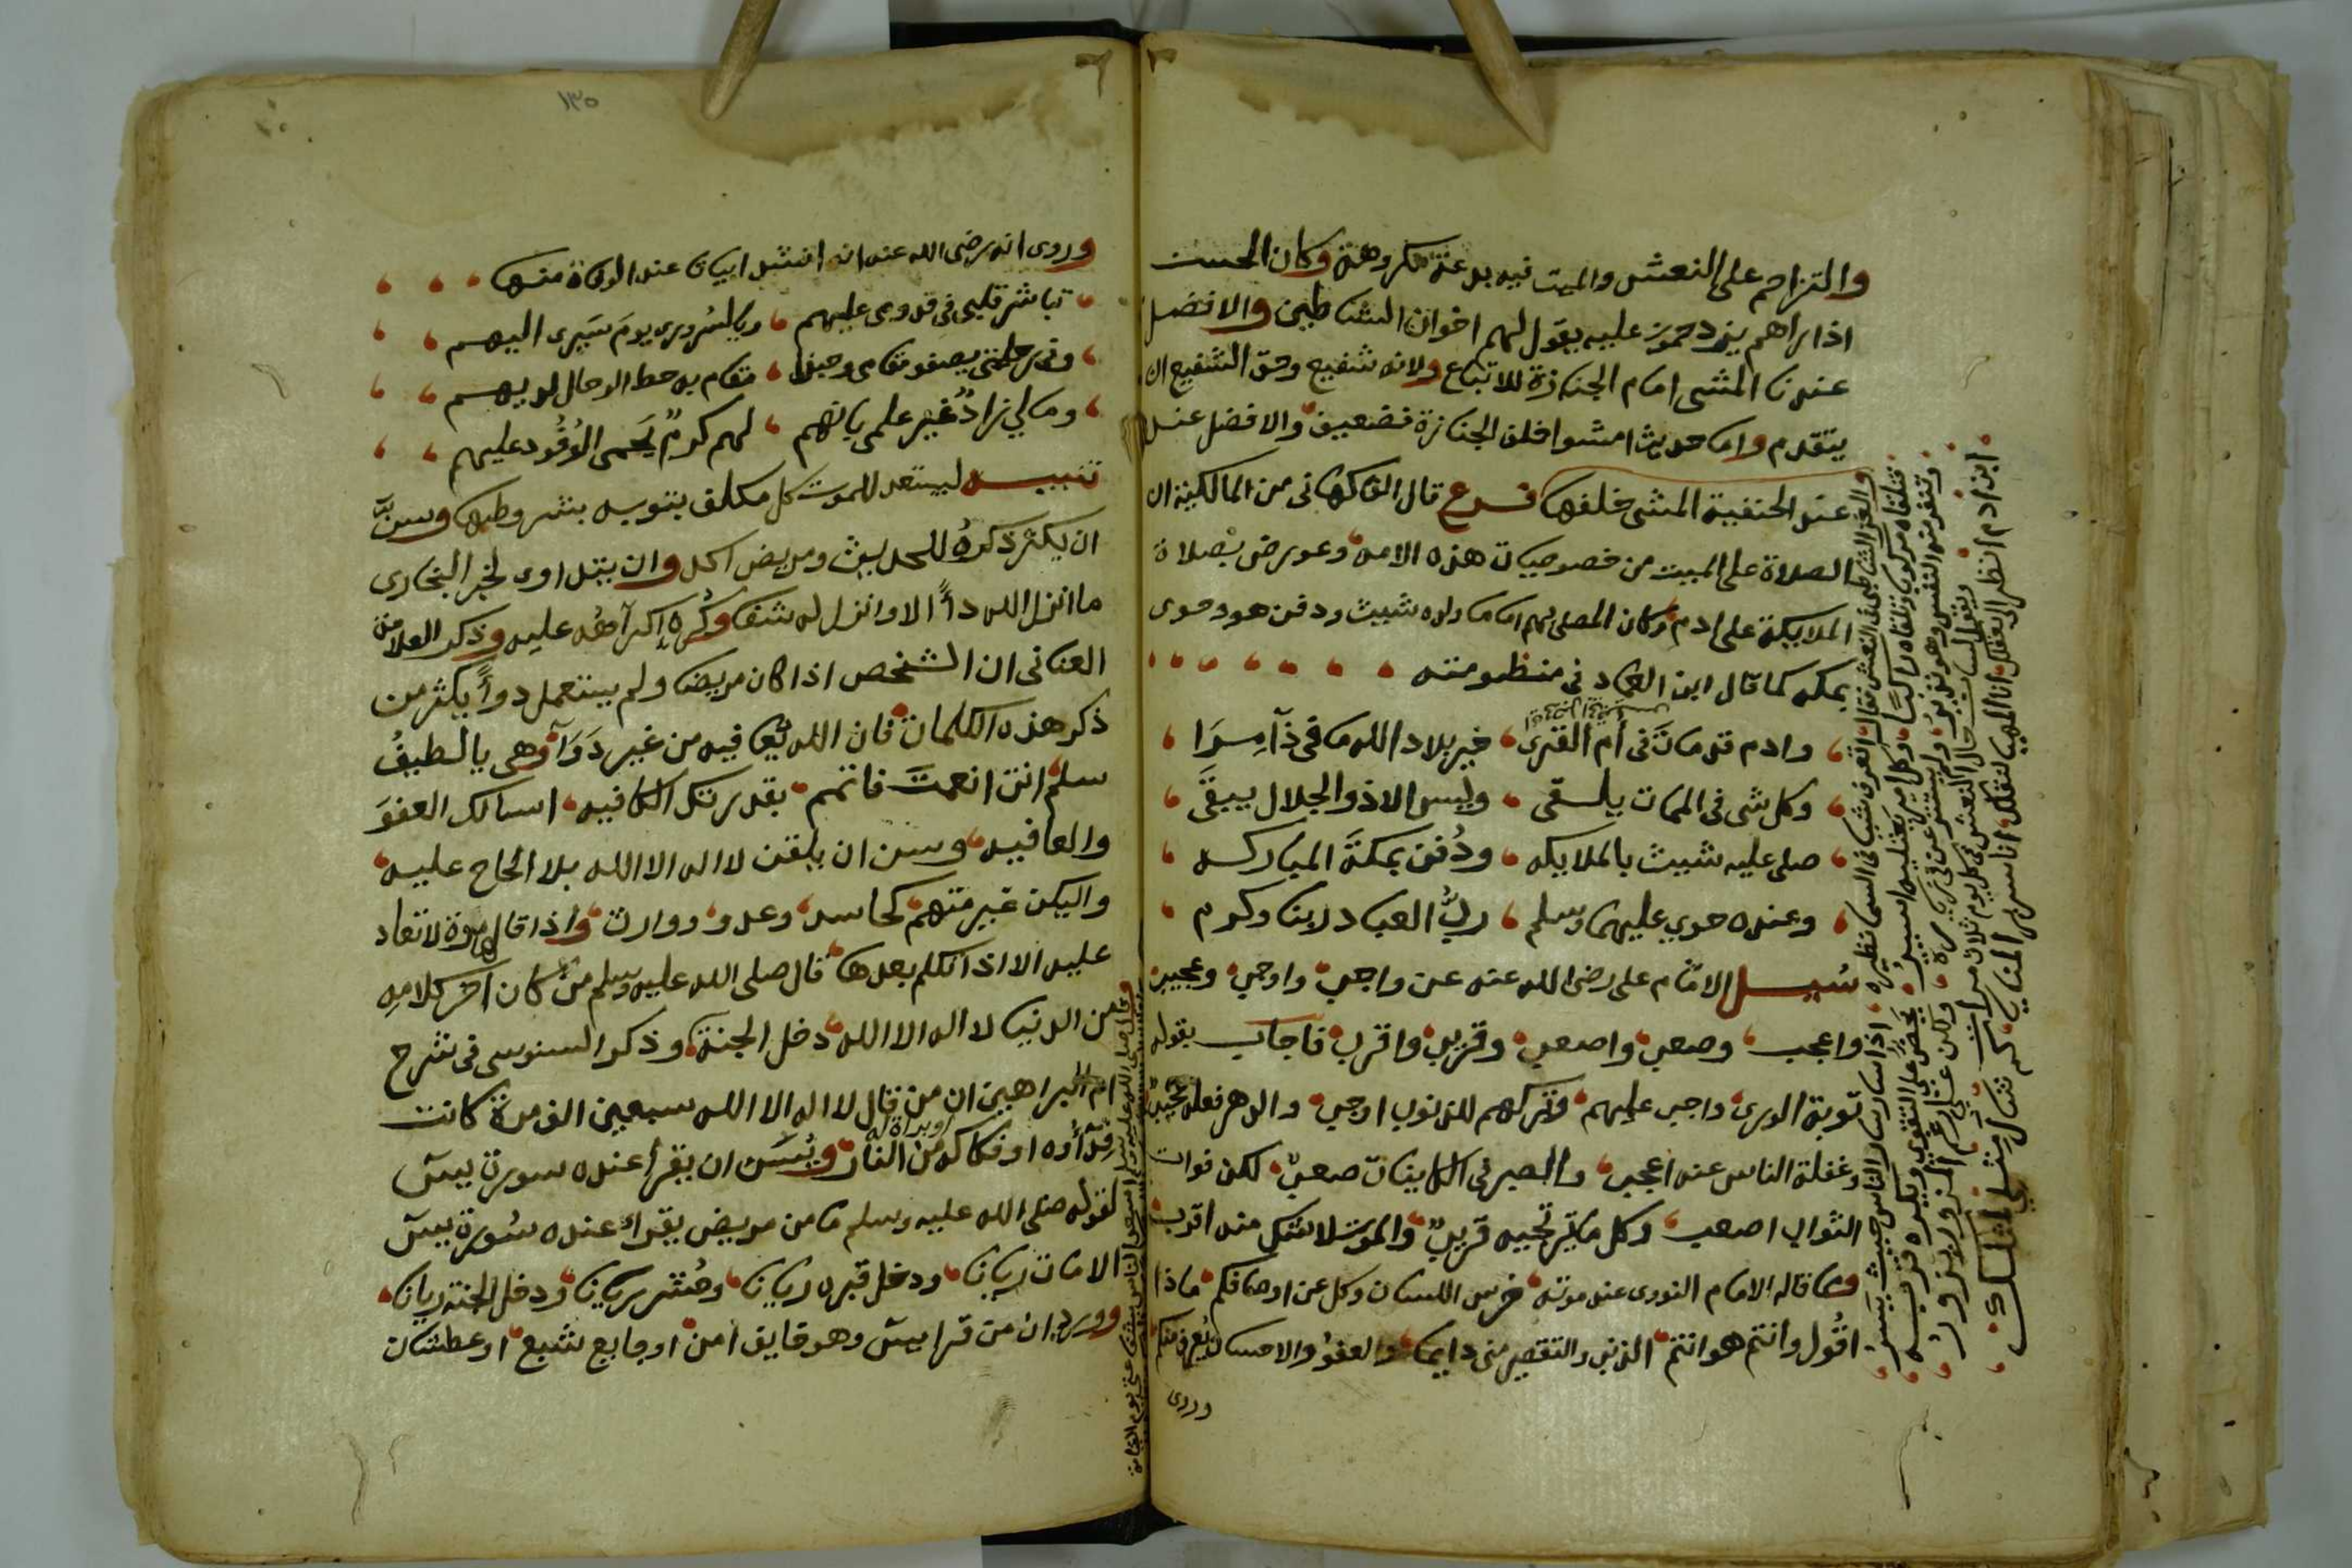 والتزاحم على النعش والميت فيه بدعة مكروهة وكان الحسن
اذا راهم يزدحمون عليه يقول لهم اخوان الشياطين والافضل
عندنا المشى امام الجنازة للاتباع ولانه شفيع وحق الشفيع ان
يتقدم واما حديث امشوا خلف الجنازة فضعيف والافضل عند
عند الحنفية المشى خلفها فرع قال الفاكهانى من المالكية ان
الصلاة على الميت من خصوصيات هذه الامه وعورض بصلاة
الملايكة على ادم وكان المصلى بهم اماما ولده شيث ودفن هو وحوى
بمكه كما قال ابن العماد فى منظومته
وادم قد مات فى أم القرى خير بلاد الله ما فى ذا مِرَا
وكل شى فى الممات يلقى وليس الا ذو الجلال يبقى
صلى عليه شيث بالملايكه ودُفن بمكةَ المباركه
وعنده حوي عليهما وسلم ربُّ العباد ربنا وكرم
سُيل الامام على رضى الله عنه عن واجب واوجب وعجيب
واعجب وصعب واصعب وقريب واقرب فاجاب بقوله
توبة الورى واجب عليهم وتركهم للذنوب اوجب والدهر فعله عجيب
وغفلة الناس عنه اعجب والصبر فى النايبات صعب لكن فوات
الثواب اصعب وكل ما ترتجيه قريب والموت لا شك منه اقرب
ومما قاله الامام النووى عند موته خرس اللسان وكل عن اوصافكم ماذا
اقُول وانتم هو انتم الذنب والتقصير منى دايما والعفو والاحسان يُعرف منكم
وروى
والغز الشاطبى فى النعش فقال اتعرف شيا فى السما نظيره اذا سار سار الناس حيث يسير
فتلقاه مركوبا وتلقاه راكبا وكل امير يعتليه اسير يحض على التقوى ويكره قربه
وتنفر منه النفس وهو نذير ولم يستزر عن رغبة فى زيارة ولكن على رغم المزور يزور
ويقول لسان حال النعش فى كل يوم ثلاث مرات
ابن ادم انظر الىّ بعقلك انا المهيا لنقلك انا سرير المنايا كم شال مثلى مثلك
١٣٥
وروى انه رضى الله عنه انه انشد ابيات عند الوفاة منها
تباشر قلبى فى قدومى عليهم ويا لسُرورى يومَ سَيرى اليهم
وفى رحلتى يصفو مقامى وحبذا مقام به حط الرحال لديهم
وما لي زادٌ غير علمى بانهم لهم كرمٌ يَحمى الوُفُود عليهم
تنبيه ليستعد للموت كل مكلف بتوبه بشروطها وسنّ
ان يكثر ذكرهُ للحديث ومريض اكد وان يتداوى لخبر البخارى
ما انزل الله داءً الا وانزل له شفا وكُره اكراهُه عليه وذكر العلامة
العنانى ان الشخص اذا كان مريضا ولم يستعمل دواً يكثر من
ذكر هذه الكلمات فان الله يُعافيه من غير دَوَاء وهى يا لطيفُ
سلم انت انعمت فاتمم بقدرتك الكافيه اسالك العفوَ
والعافيه وسن ان يلقن لا اله الا الله بلا الحاح عليه
واليكن غير متهم كحاسد وعدو ووارث واذا قالها مرة لا تعاد
عليه الا اذا تكلم بعدها قال صلى الله عليه وسلم من كان آخر كلامه
من الدنيا لا اله الا الله دخل الجنة وذكر السنوسى فى شرح
ام البراهين ان من قال لا اله الا الله سبعين الف مرة كانت
فِدَاؤه او فكاكه من النار ويُسَن ان يقرأ عنده سورة يس
لقوله صلى الله عليه وسلم ما من مريض يقراء عنده سُورة يس
الا مات ريانا ودخل قبره ريانا وحُشر ريانا ودخل الجنة ريانا
وورد ان من قرا يس وهو خايف امن او جايع شبع او عطشان